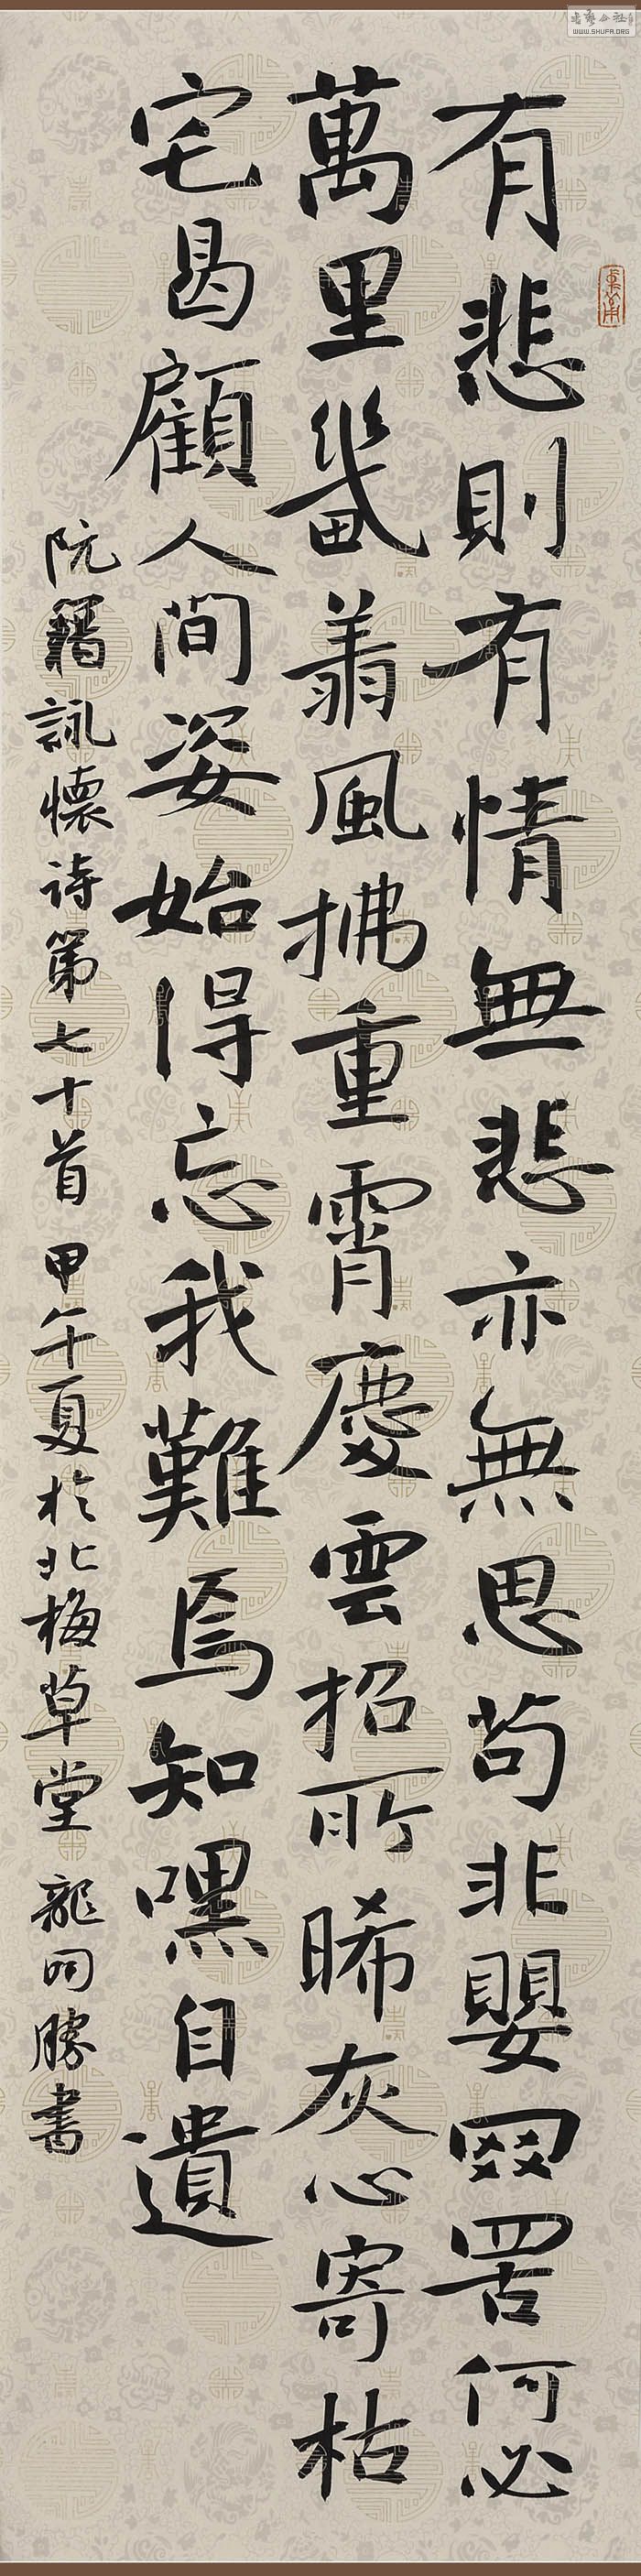 有悲則有情無悲亦無思苟非嬰网罟何必
萬里畿翔風拂重霄慶雲招所晞灰心寄枯
宅曷顧人間姿始得忘我難焉知嘿自遺
阮籍詠懷詩第七十首 甲午夏於北梅草堂 龍開勝書
WWW.SHUFA.ORG